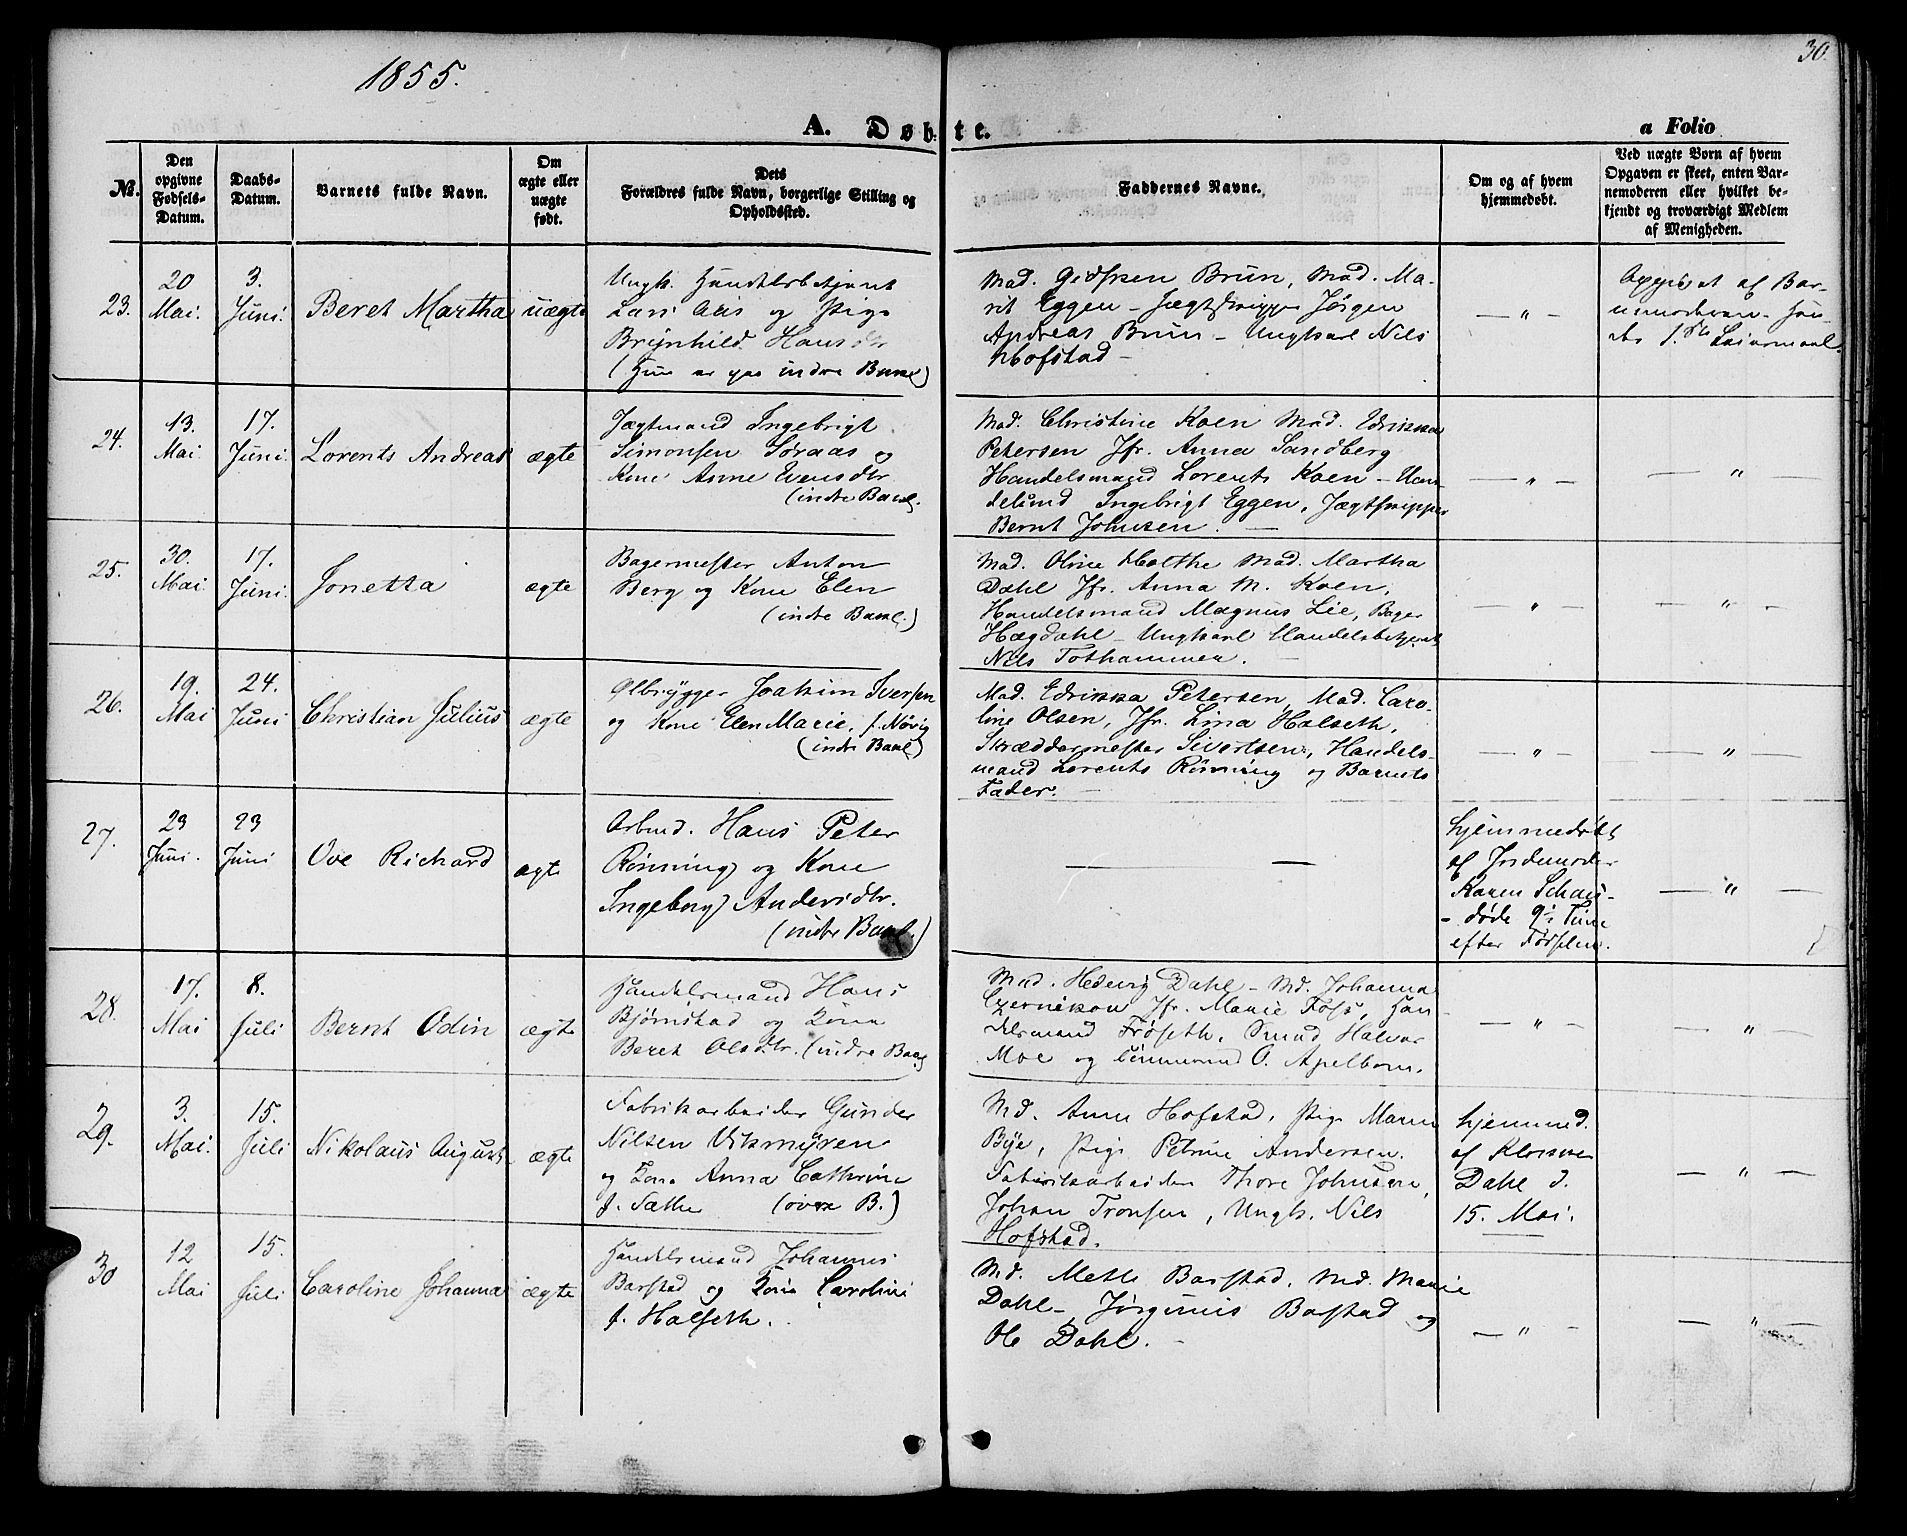 1855.
30.
A. Døbte.
a Folio
No.
Den opgivne Fødsels-Datum.
Daabs-Datum.
Barnets fulde Navn.
Om ægte eller uægte født.
Dets Forældres fulde Navn, borgerlige Stilling og Opholdssted.
Faddernes Navne.
Om og af hvem hjemmedøbt.
Ved uægte Børn af hvem Opgaven er skeet, enten Barnemoderen eller hvilket bekjendt og troværdigt Medlem af Menigheden.
23.
20 Mai.
3. Juni.
Beret Martha
uægte
Ungk. Handelsbetjent
Lars Aas og Pige
Brynhild Hansdtr
(Hun er paa indre Bakl)
Mad. Gidsken Brun, Mad. Ma-
rit Eggen - Jægtskipper Jørgen
Andreas Brun - Ungkarl Nils
Hofstad -
— " —
Opgivet af Bar-
nemoderen - Hen-
des 1.ste Leiermaal.
24.
13. Mai.
17. Juni.
Lorents Andreas
ægte
Jægtmand Ingebrigt
Simonsen Søraas og
Kone Anne Evensdtr
(indre Bakl.
Mad. Christine Koen Mad. Edrikka
Petersen Jfr. Anna Sandberg
Handelsmand Lorents Koen - Han-
delsmd Ingebrigt Eggen, Jægtskipper
Bernt Johnsen. —
— " —
— " —
25.
30. Mai.
17. Juni.
Jonetta
ægte
Bagermester Anton
Berg og Kone Elen
(indre Bakl.)
Mad. Oline Holthe Mad. Martha
Dahl Jfr. Anna M. Koen,
Handelsmand Magnus Lie, Bager
Hægdahl - Ungkarl Handelsbetjent
Nils Tothammer. —
— " —
— " —
26.
19. Mai
24. Juni
Christian Julius
ægte
Ølbrygger Joakim Iversen
og Kone Elen Marie, f. Nøvig
(indre Bakl)
Mad. Edrikka Petersen, Mad. Caro-
line Olsen, Jfr. Lina Halseth,
Skræddermester Sivertsen, Handels-
mand Lorents Rønning og Barnets
Fader. —
— " —
— " —
27.
23 Juni.
23 Juni
Ove Richard
ægte
Arbmd. Hans Peter
Rønning og Kone
Ingeborg Andersdtr.
(indre Bakl.)
— —
hjemmedøbt
af Jordemoder
Karen Schau-
- døde 9½ Time
efter Fødselen.
— " —
28.
17. Mai
8. Juli
Bernt Odin
ægte
Handelsmand Hans
Bjørnstad og Kone
Beret Olsdtr. (indre Bakl
Mad. Hedevig Dahl - Md. Johanna
Czernikow Jfr. Marie Foss, Han-
delsmand Frøseth, Smed Halvor
Moe og Tømmermd O. Apelborn.
— " —
— " —
29.
3. Mai.
15. Juli
Nikolaus August
ægte
Fabrikarbeider Gunder
Nilsen Vikmyren
og Kone Anna Cathrine
f. Sæther (øvre B.)
Md. Anne Hofstad, Pige Maren
Bye, Pige Petrine Andersen.
Fabrikarbeider Thore Johnsen,
Johan Tronsen, Ungk. Nils
Hofstad.
hjemmed.
af Klokker
Dahl d.
15. Mai.
— " —
30
12 Mai
15. Juli
Caroline Johanna
ægte
Handelsmand Johannes
Barstad og Kone Caroline
f. Halseth.
Md. Mette Barstad, Md. Marie
Dahl - Jørginus Barstad og
Ole Dahl. -
— " —
— " —